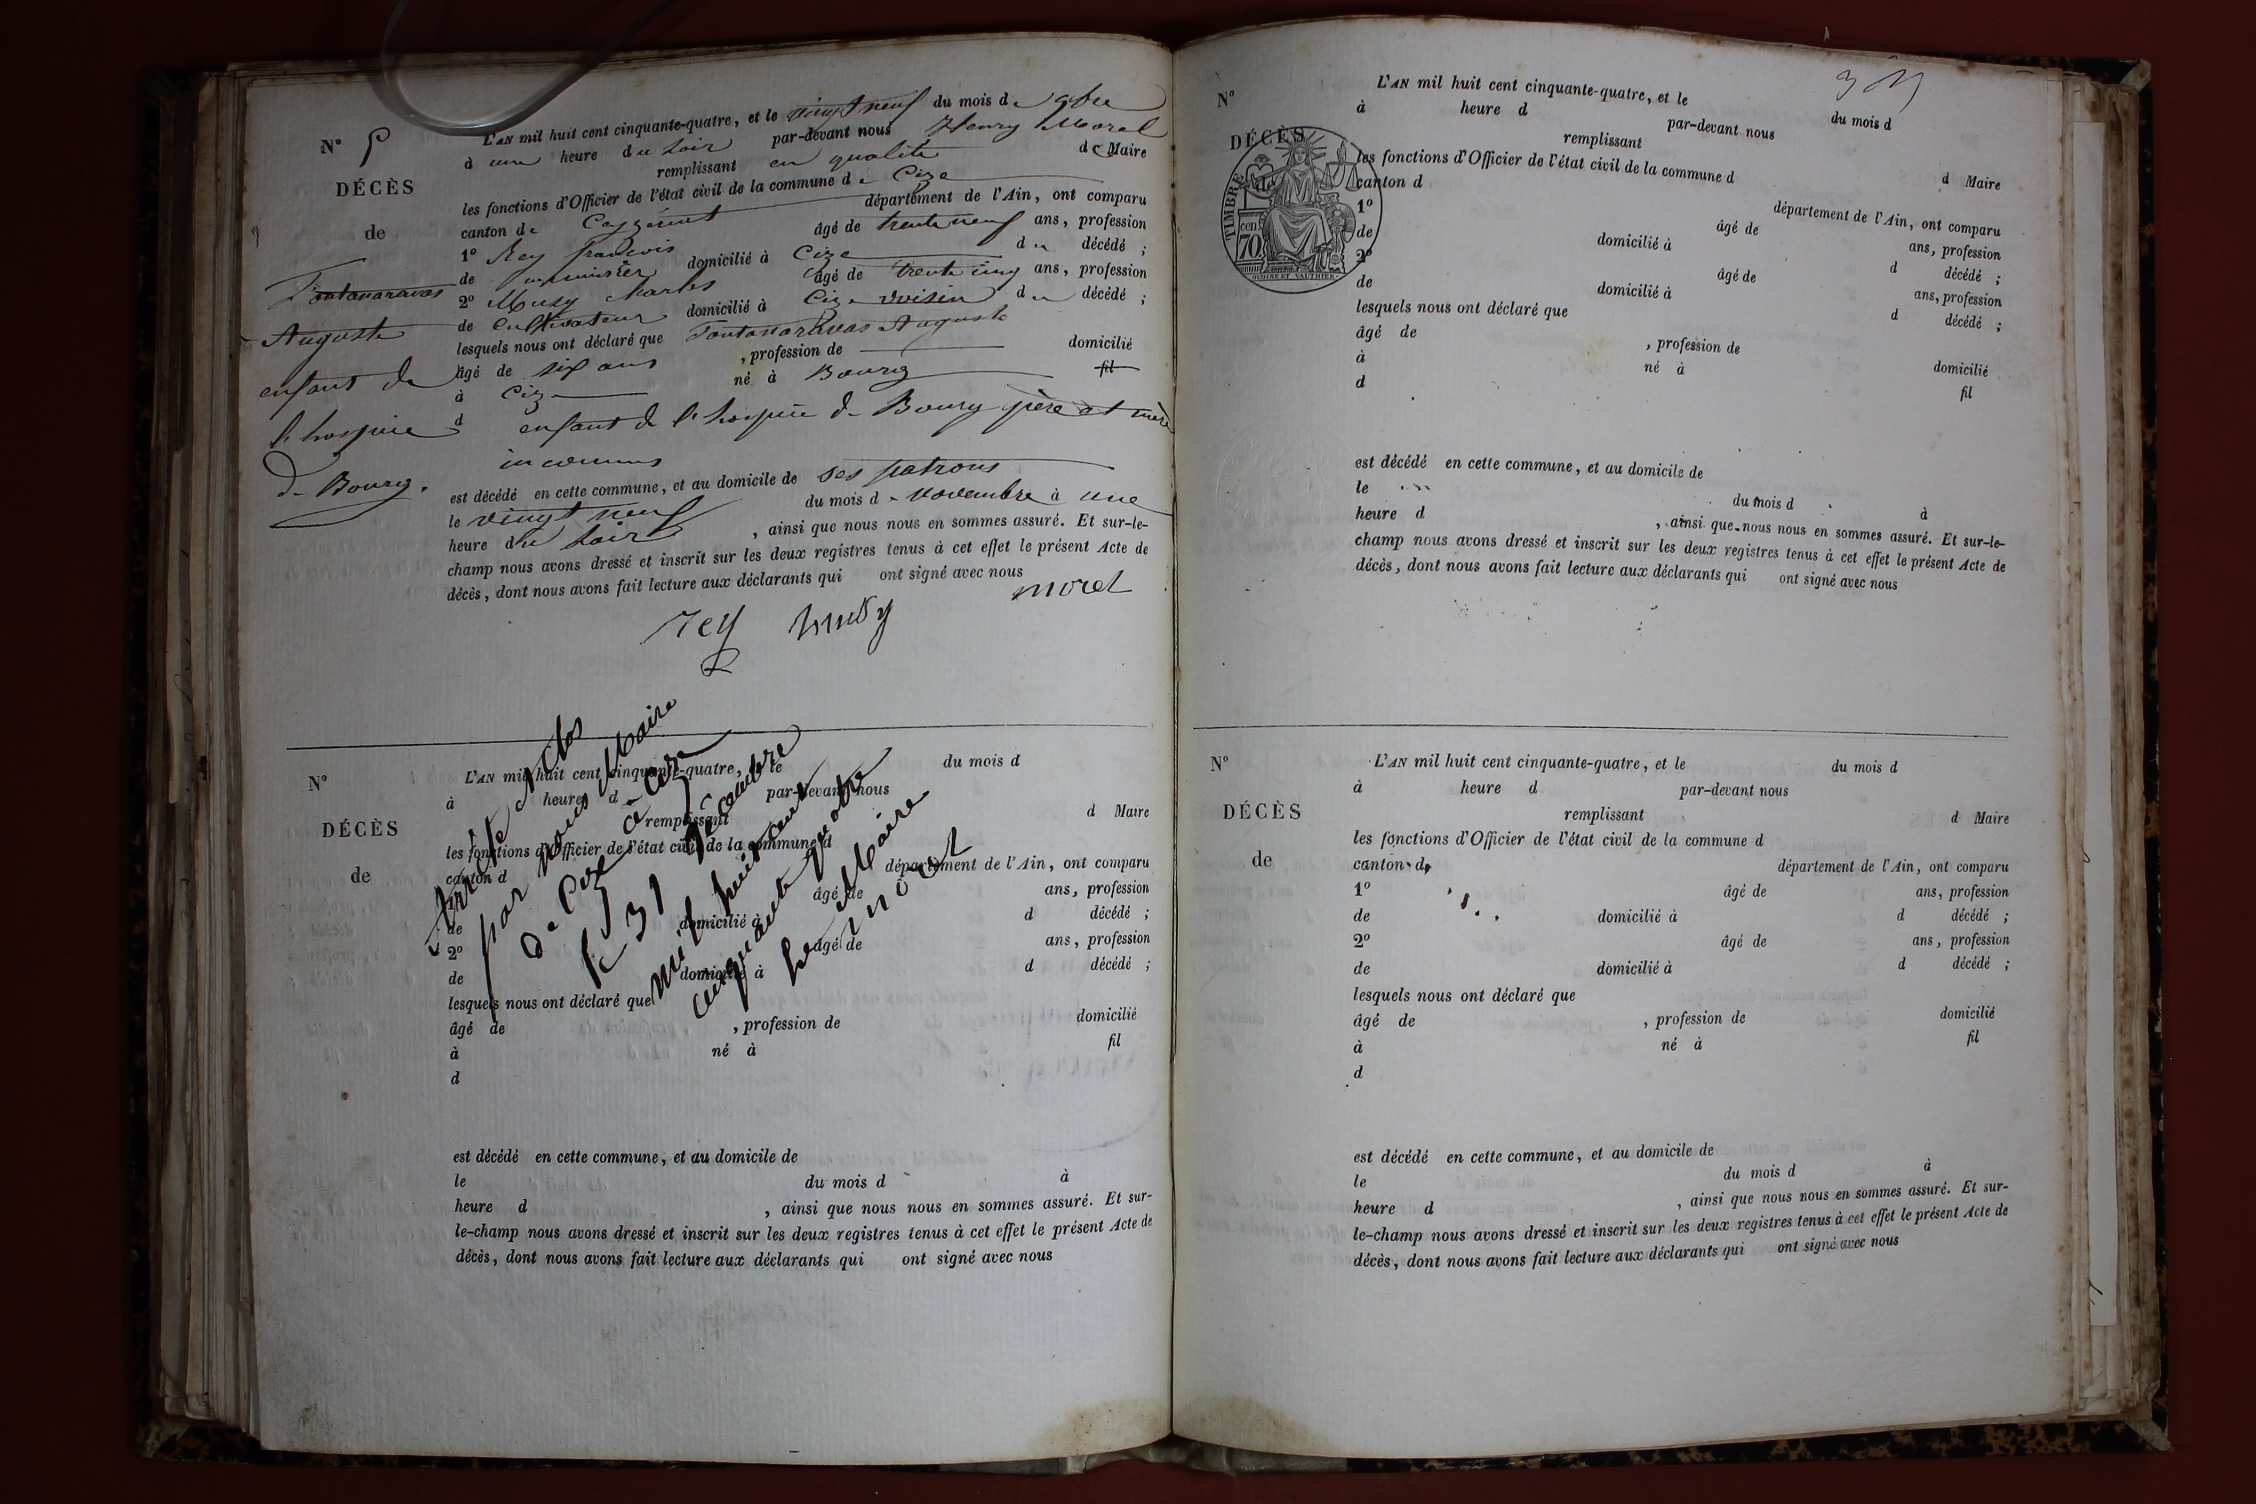 N° 5
DÉCÈS
de
Fontanaravas
Auguste
enfant de
l'hospice
de Bourg.
L'AN mil huit cent cinquante-quatre, et le vingt neuf du mois de 9bre
à une heure du soir par-devant nous Henry Morel
remplissant en qualité de Maire
les fonctions d'Officier de l'état civil de la commune de Cize
canton de Ceyzériat département de l'Ain, ont comparu
1° Rey françois âgé de trente neuf ans, profession
de domicilié à Cize du décédé ;
2° Musy Charles âgé de trente cinq ans, profession
de cultivateur domicilié à Cize voisin du décédé ;
lesquels nous ont déclaré que Fontanaravas Auguste
âgé de six ans , profession de domicilié
à Cize né à Bourg fil
d enfant de l'hospice de Bourg père et mère
inconnus
est décédé en cette commune, et au domicile de ses patrons
le vingt neuf du mois de novembre à une
heure du soir , ainsi que nous nous en sommes assuré. Et sur-le-
champ nous avons dressé et inscrit sur les deux registres tenus à cet effet le présent Acte de
décès, dont nous avons fait lecture aux déclarants qui ont signé avec nous
Rey musy morel
N°
DÉCÈS
de
L'AN mil huit cent cinquante-quatre, et le du mois d
à heure d par-devant nous
remplissant d Maire
les fonctions d'Officier de l'état civil de la commune d
canton d département de l'Ain, ont comparu
1° âgé de ans, profession
de domicilié à d décédé ;
2° âgé de ans, profession
de domicilié à d décédé ;
lesquels nous ont déclaré que
âgé de , profession de domicilié
à né à fil
d
est décédé en cette commune, et au domicile de
le du mois d à
heure d , ainsi que nous nous en sommes assuré. Et sur-
le-champ nous avons dressé et inscrit sur les deux registres tenus à cet effet le présent Acte de
décès, dont nous avons fait lecture aux déclarants qui ont signé avec nous
Arrêté
par nous Maire
de Cize à Cize
le 31 décembre
mil huit cent
cinquante quatre
le Maire
morel
N°
DÉCÈS
de
TIMBRE
70 cen.
L'AN mil huit cent cinquante-quatre, et le du mois d
à heure d par-devant nous
remplissant d Maire
les fonctions d'Officier de l'état civil de la commune d
canton d département de l'Ain, ont comparu
1° âgé de ans, profession
de domicilié à d décédé ;
2° âgé de ans, profession
de domicilié à d décédé ;
lesquels nous ont déclaré que
âgé de , profession de domicilié
à né à fil
d
est décédé en cette commune, et au domicile de
le du mois d à
heure d , ainsi que nous nous en sommes assuré. Et sur-le-
champ nous avons dressé et inscrit sur les deux registres tenus à cet effet le présent Acte de
décès, dont nous avons fait lecture aux déclarants qui ont signé avec nous
N°
DÉCÈS
de
L'AN mil huit cent cinquante-quatre, et le du mois d
à heure d par-devant nous
remplissant d Maire
les fonctions d'Officier de l'état civil de la commune d
canton d département de l'Ain, ont comparu
1° âgé de ans, profession
de domicilié à d décédé ;
2° âgé de ans, profession
de domicilié à d décédé ;
lesquels nous ont déclaré que
âgé de , profession de domicilié
à né à fil
d
est décédé en cette commune, et au domicile de
le du mois d à
heure d , ainsi que nous nous en sommes assuré. Et sur-
le-champ nous avons dressé et inscrit sur les deux registres tenus à cet effet le présent Acte de
décès, dont nous avons fait lecture aux déclarants qui ont signé avec nous